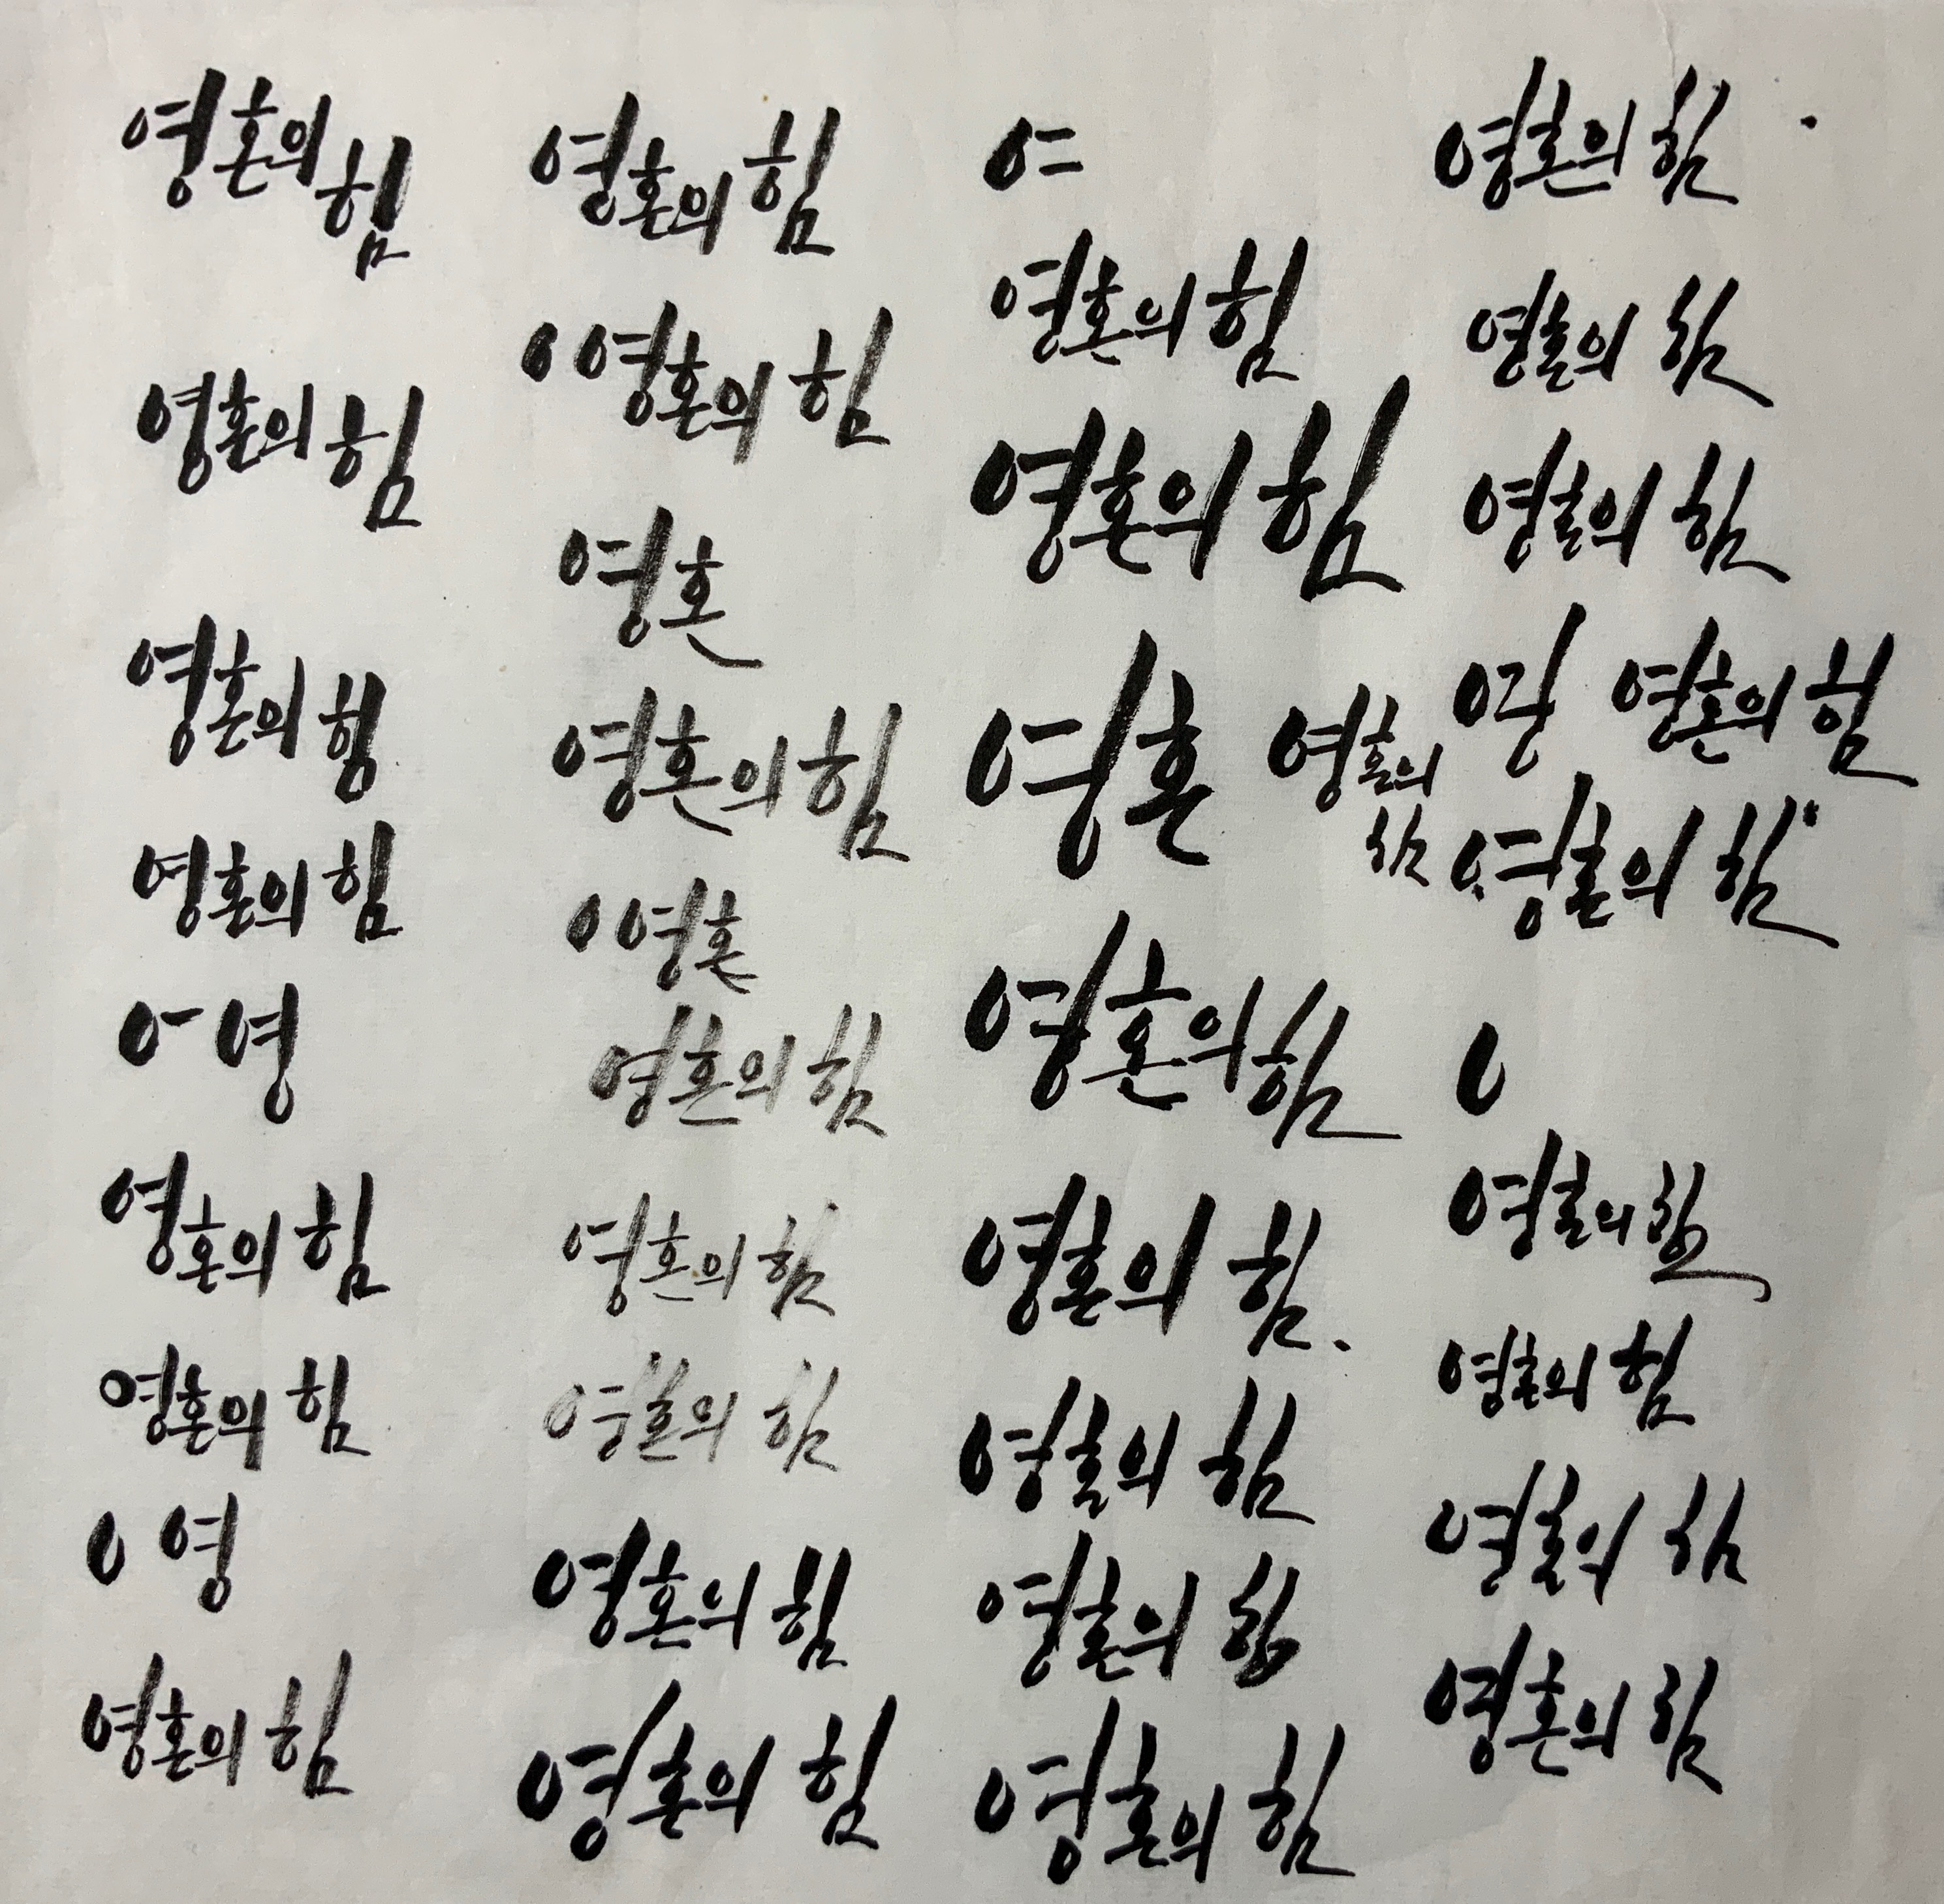 영혼의 힘
영혼의 힘
영혼의 힘
영혼의 힘
영
영혼의 힘
영혼의 힘
영
영혼의 힘
영혼의 힘
영혼의 힘
영혼
영혼의 힘
영혼
영혼의 힘
영혼의 힘
영혼의 힘
영혼의 힘
영혼의 힘
영혼의 힘
영혼의 힘
영혼
영혼의 힘
영혼의 힘
영혼의 힘
영혼의 힘
영혼의 힘
영혼의 힘
영혼의 힘
영혼의 힘
영혼의 힘
영 영혼의 힘
영혼의 힘
영혼의 힘
영혼의 힘
영혼의 힘
영혼의 힘